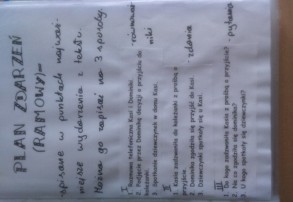 PLAN ZDARZEŃ
(RAMOWY) -
spisane w punktach najważ-
niejsze wydarzenia z tekstu.
Można go zapisać na 3 sposoby:
I
1. Rozmowa telefoniczna Kasi i Dominiki.
2. Podjęcie przez Dominikę decyzji o przyjściu do
koleżanki.
3. Spotkanie dziewczynek w domu Kasi.
II
1. Kasia zadzwoniła do koleżanki z prośbą o
przyjście.
2. Dominika zgodziła się przyjść do Kasi.
3. Dziewczynki spotkały się u Kasi.
zdania
III
1. Do kogo zadzwoniła Kasia z prośbą o przyjście?
2. Na co zgodziła się Dominika?
3. U kogo spotkały się dziewczynki?
pytania